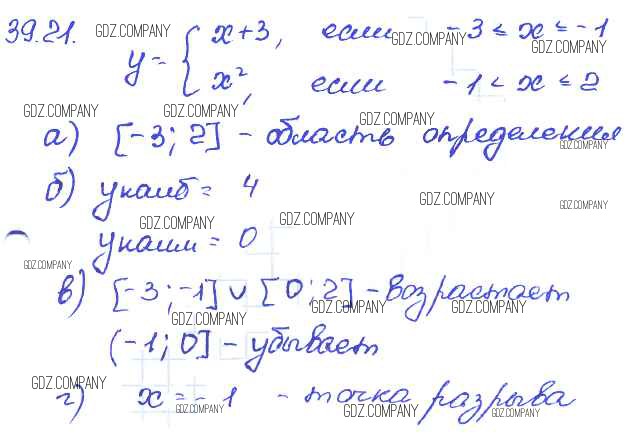 39.21. GDZ.COMPANY x+3, если GDZ.COMPANY -3 ≤ x ≤ -1 GDZ.COMPANY
y = {
x², если -1 < x ≤ 2
GDZ.COMPANY GDZ.COMPANY GDZ.COMPANY
а) [-3; 2] - область определения GDZ.COMPANY
б) yнаиб = 4 GDZ.COMPANY GDZ.COMPANY
GDZ.COMPANY GDZ.COMPANY
yнаим = 0
GDZ.COMPANY
в) [-3; -1] ∪ [0; 2] - возрастает
GDZ.COMPANY GDZ.COMPANY GDZ.COMPANY
(-1; 0] - убывает
GDZ.COMPANY
г) x = -1 - точка разрыва
GDZ.COMPANY GDZ.COMPANY GDZ.COMPANY